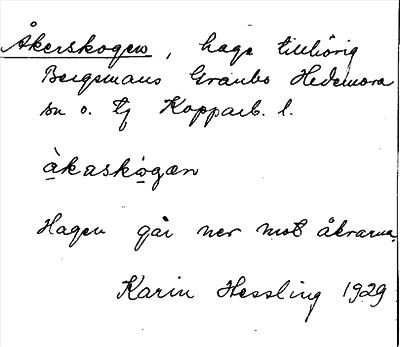 Åkerskogen, hage tillhörig
Bergsmans Gränbo Hedemora
sn o. tg Kopparb. l.
åkaskògæn
Hagen går ner mot åkrarna.
Karin Hessling 1929